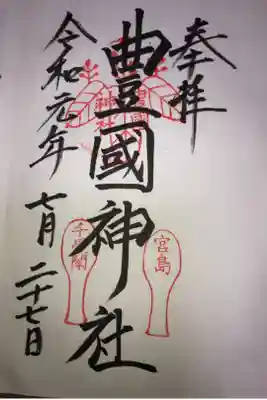 奉拝
豊國神社
令和元年
七月二十七日
宮島
千畳閣